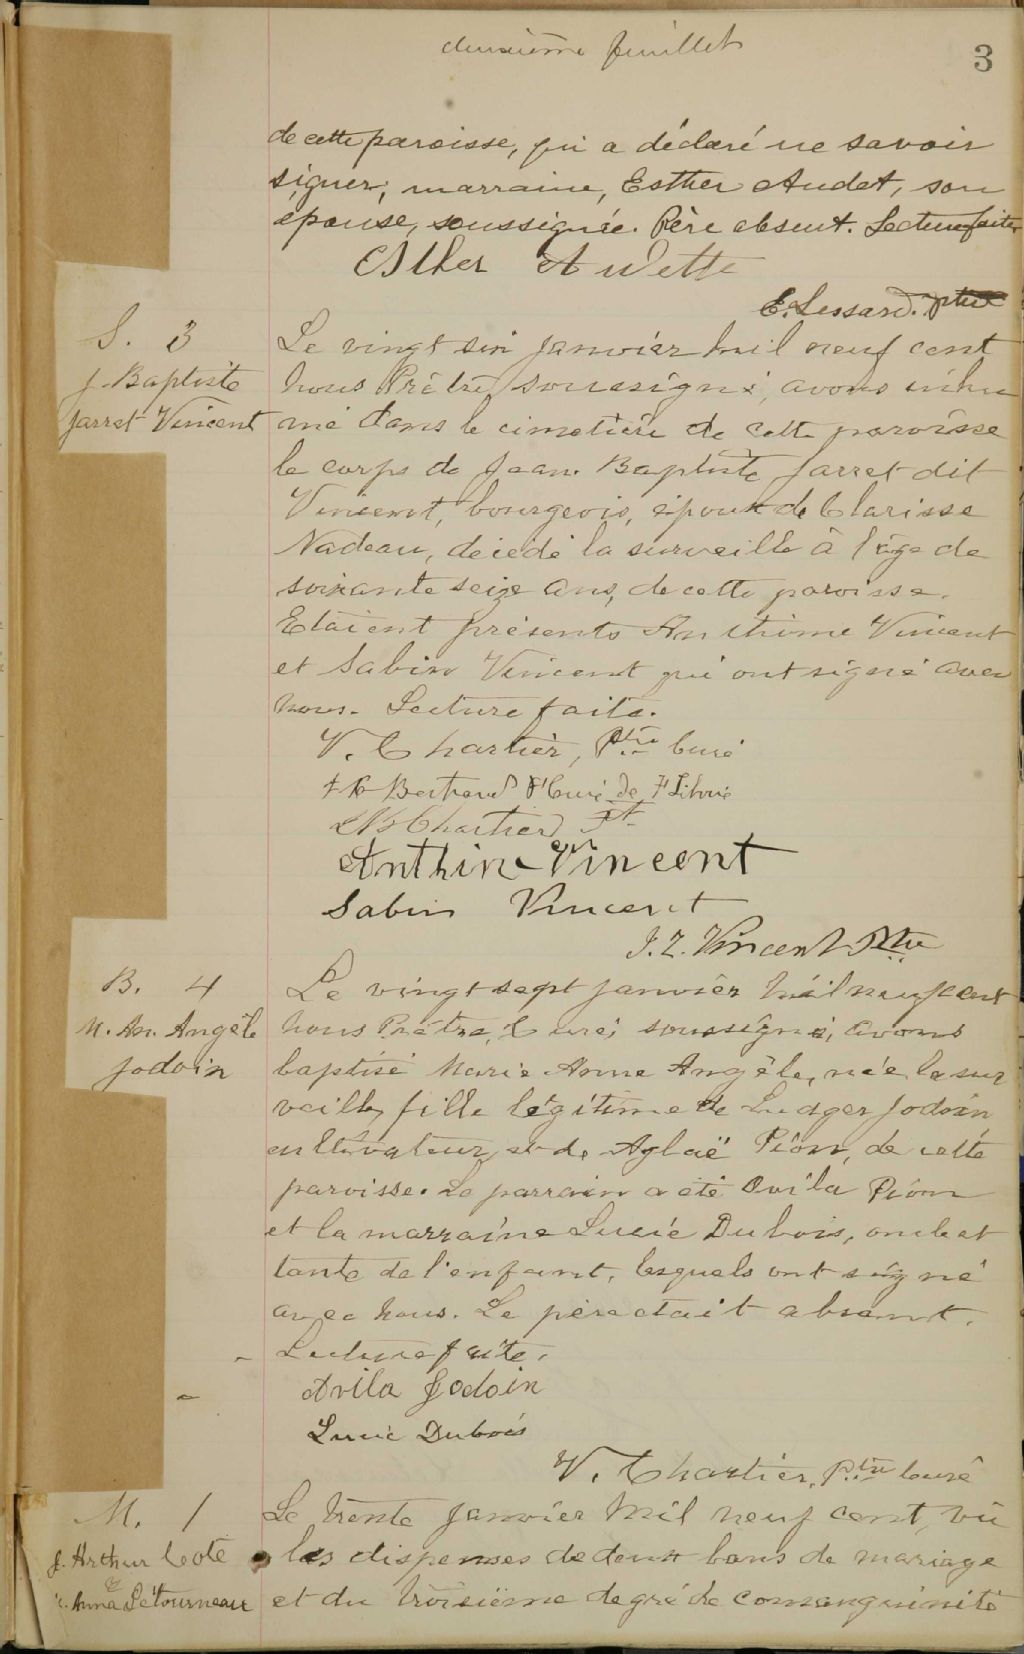 deuxième feuillet
3
de cette paroisse, qui a déclaré ne savoir
signer, marraine, Esther Audet, son
épouse, soussignée. Père absent. Lecture faite
Esther Audette
E. Lessard. ptre
S. 3
J. Baptiste
Jarret Vincent
Le vingt six janvier mil neuf cent
nous Prêtre soussigné, avons inhu
mé dans le cimetière de cette paroisse
le corps de Jean Baptiste Jarret dit
Vincent, bourgeois, époux de Clarisse
Nadeau, décédé la surveille à l'âge de
soixante seize ans, de cette paroisse.
Etaient présents Anthime Vincent
et Sabin Vincent qui ont signé avec
nous. Lecture faite.
V. Chartier, Ptre Curé
Bertrand Curé de
Chartier
Anthime Vincent
Sabin Vincent
J. Z. Vincent Ptre
B. 4
M. An. Angèle
Jodoin
Le vingt sept janvier mil neuf cent
nous Prêtre, Curé, soussigné, avons
baptisé Marie Anne Angèle, née la sur
veille, fille légitime de Ludger Jodoin
cultivateur, et de Aglaë Pion, de cette
paroisse. Le parrain a été Ovila Pion
et la marraine Lucie Dubois, oncle et
tante de l'enfant, lesquels ont signé
avec nous. Le père était absent.
Lecture faite.
Avila Jodoin
Lucie Dubois
V. Chartier, Ptre Curé
M. 1
J. Arthur Coté
&
Anna Létourneau
Le trente janvier mil neuf cent, vu
les dispenses de deux bans de mariage
et du troisième degré de consanguinité